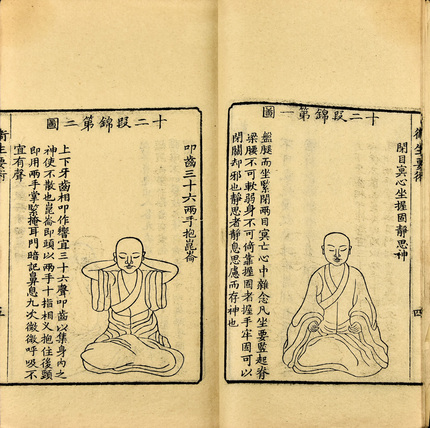 衛生要術
四
十二段錦第一圖
閉目冥心坐握固靜思神
盤腿而坐緊閉兩目冥亡心中雜念凡坐要豎起脊
梁腰不可軟弱身不可倚靠握固者握手牢固可以
閉關却邪也靜思者靜息思慮而存神也
十二段錦第二圖
叩齒三十六兩手抱崑崙
上下牙齒相叩作響宜三十六聲叩齒以集身內之
神使不散也崑崙即頭以兩手十指相叉抱住後頸
即用兩手掌緊掩耳門暗記鼻息九次微微呼吸不
宜有聲
衛生要術